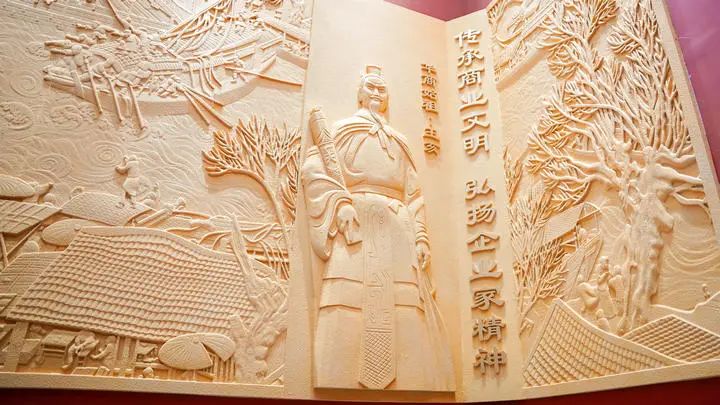 传承商业文明 弘扬企业家精神
华商始祖·王亥